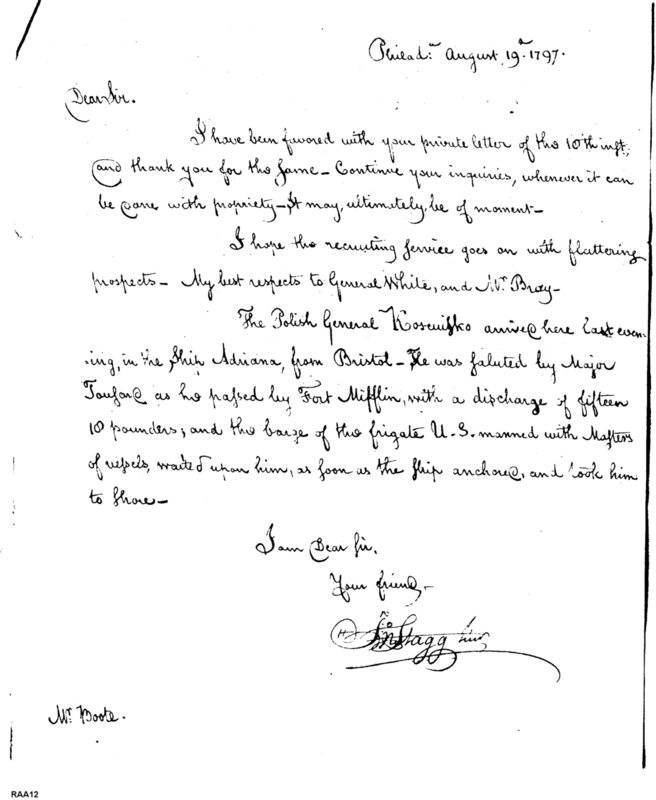 Philad.ª August 19.th 1797.
Dear Sir.
I have been favored with your private letter of the 10th inst.,
and thank you for the same – Continue your inquiries, whenever it can
be done with propriety – It may, ultimately, be of moment –
I hope the recruiting service goes on with flattering
prospects – My best respects to General White, and Mr. Bray –
The Polish General Kosciusko arrived here last even-
-ing, in the Ship Adriana, from Bristol – He was saluted by Major
Tousard as he passed by Fort Mifflin, with a discharge of fifteen
18 pounders; and the barge of the frigate U.S. manned with Masters
of vessels, waited upon him, as soon as the ship anchored, and took him
to Shore –
I am Dear Sir,
Your friend –
Jno Stagg Junr
Mr. Boote.
RAA12